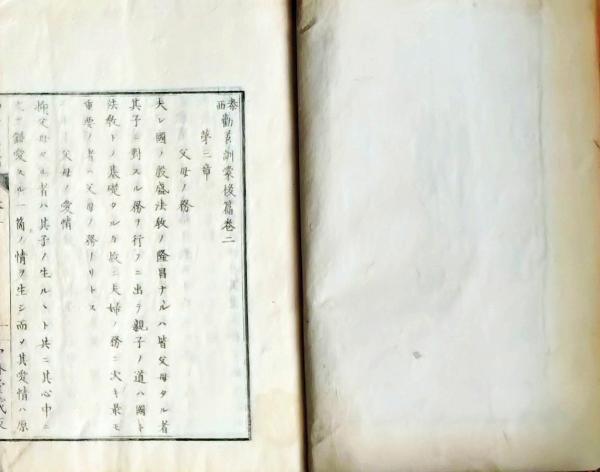 泰西勸善訓蒙後篇巻二
第三章
父母ノ務
夫レ國ノ殷盛法教ノ隆昌ナルハ皆父母タル者
其子ニ對スル務ヲ行フニ出テ親子ノ道ハ國ト
法教トノ基礎タルカ故ニ夫婦ノ務ニ次キ最モ
重要ノ者ハ父母ノ務ナリトス
父母ノ愛情
抑父母タル者ハ其子ノ生ルヽト共ニ其心中ニ
之ヲ鍾愛スル一箇ノ情ヲ生シ而メ其愛情ハ原